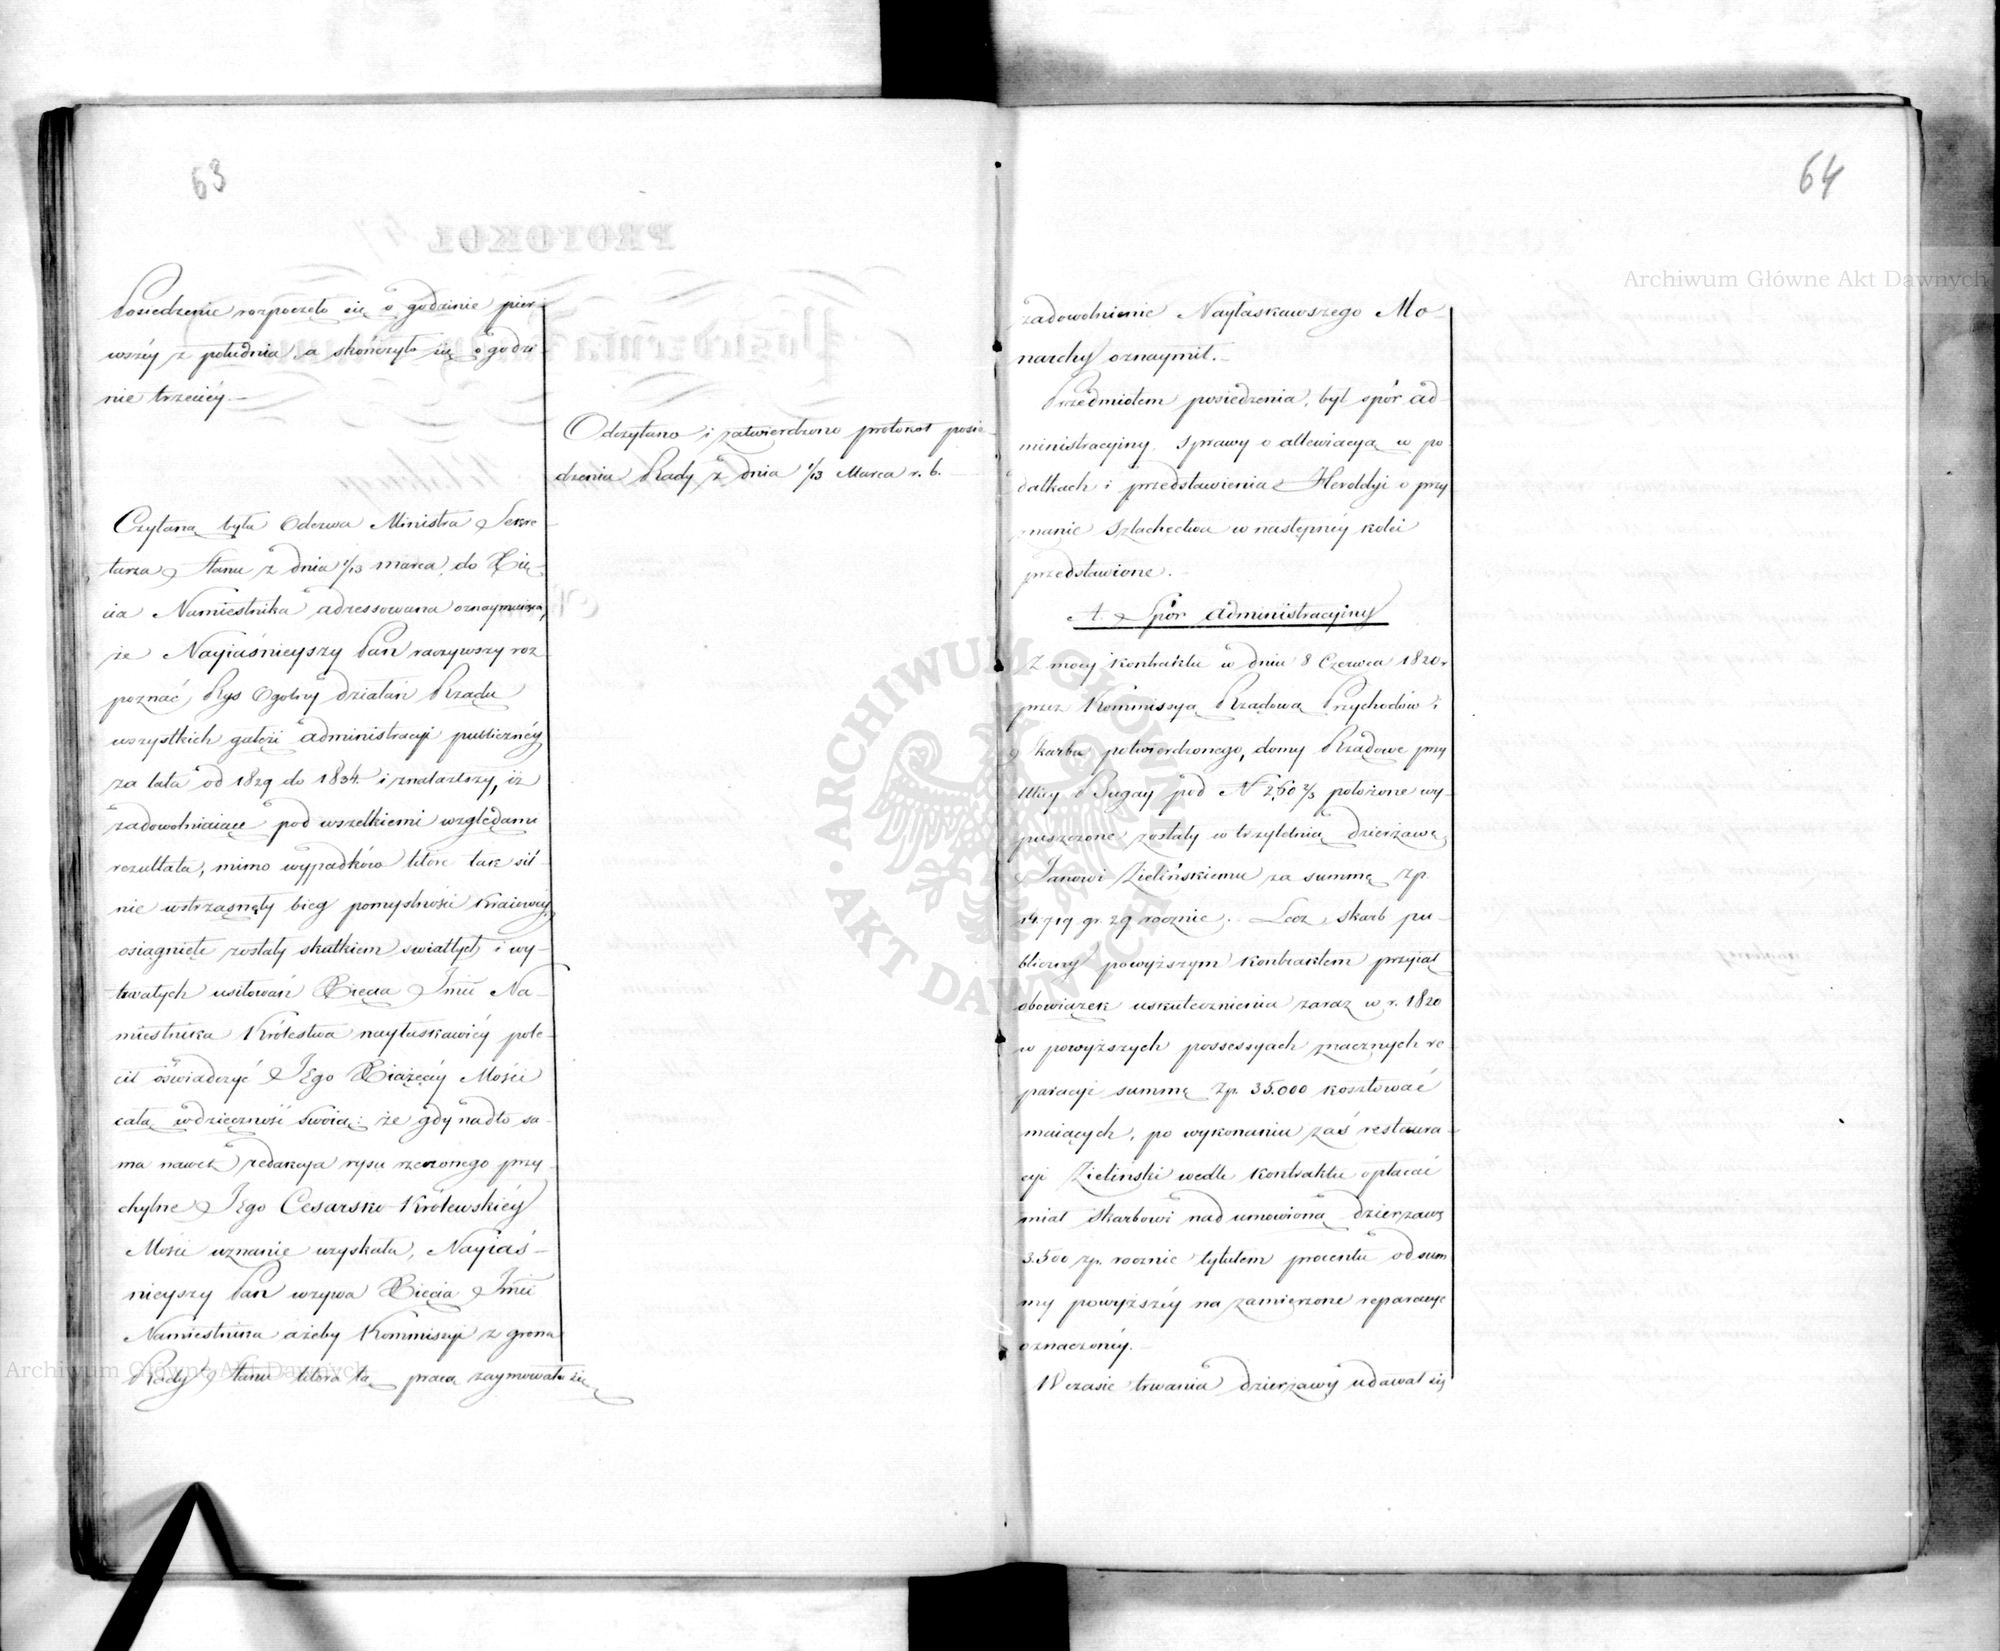 63
Posiedzenie rozpoczęło się o godzinie pier-
wszéy z południa a skończyło się o godzi-
nie trzeciéy.
Odczytano i zatwierdzono protokoł posie-
dzenia Rady z dnia 1/13 Marca r. b.
Czytana była Odezwa Ministra Sekre
tarza Stanu z dnia 1/13 marca do Xię-
cia Namiestnika adressowana oznaymuiąca,
że Nayiaśnieyszy Pan raczywszy roz
poznać Rys Ogolny działań Rządu
wszystkich gałęzi administracyi publicznéy
za lata od 1829 do 1834. i znalazłszy, iż
zadowolniaiące pod wszelkiemi względami
rezultata, mimo wypadków które tak sil-
nie wstrząsnęły bieg pomyslności Kraiowéy,
osiągnięte zostały skutkiem światłych i wy-
trwałych usiłowań Xięcia Jmci Na-
miestnika Królestwa nayłaskawiéy pole-
cił oświadczyć Jego Xiążęcéy Mości
całą wdzięczność swoią; że gdy nadto sa-
ma nawet redakcya rysu rzeczonego przy-
chylne Jego Cesarsko Królewskiéy
Mości uznanie uzyskała, Nayiaś-
nieyszy Pan wzywa Xięcia Jmci
Namiestnika ażeby Kommissyi z grona
Rady Stanu która tą pracą zaymowała się
64
zadowolnienie Nayłaskawszego Mo-
narchy oznaymił.
Przedmiotem posiedzenia, był spór ad-
ministracyiny, sprawy o allewiacyą w po
datkach i przedstawienia Heroldyi o przy
znanie Szlachectwa w następnéy kolei
przedstawione.
A. Spór administracyiny
Z mocy kontraktu w dniu 8 Czerwca 1820 r
przez Kommissyą Rządową Przychodów i
Skarbu potwierdzonego, domy Rządowe przy
Ulicy Bugay pod N 2,60 2/3 położone wy-
puszczone zostały w trzyletnią dzierżawę
Janowi Zielińskiemu za summę zp.
14.719 gr. 29 rocznie. Lecz skarb pu-
bliczny powyższym kontraktem przyiął
obowiązek uskutecznienia zaraz w r. 1820
w powyższych possessyach znacznych re-
paracyi summę zp. 35.000 kosztować
maiących, po wykonaniu zaś restaura-
cyi Zieliński wedle kontraktu opłacać
miał skarbowi nad umowioną dzierżawę
3.500 zp. rocznie tytułem procentu od sum
my powyższéy na zamierzone reparacye
oznaczonéy.
W czasie trwania dzierżawy udawał się
Archiwum Główne Akt Dawnych
Archiwum Główne Akt Dawnych
ARCHIWUM GŁÓWNE AKT DAWNYCH